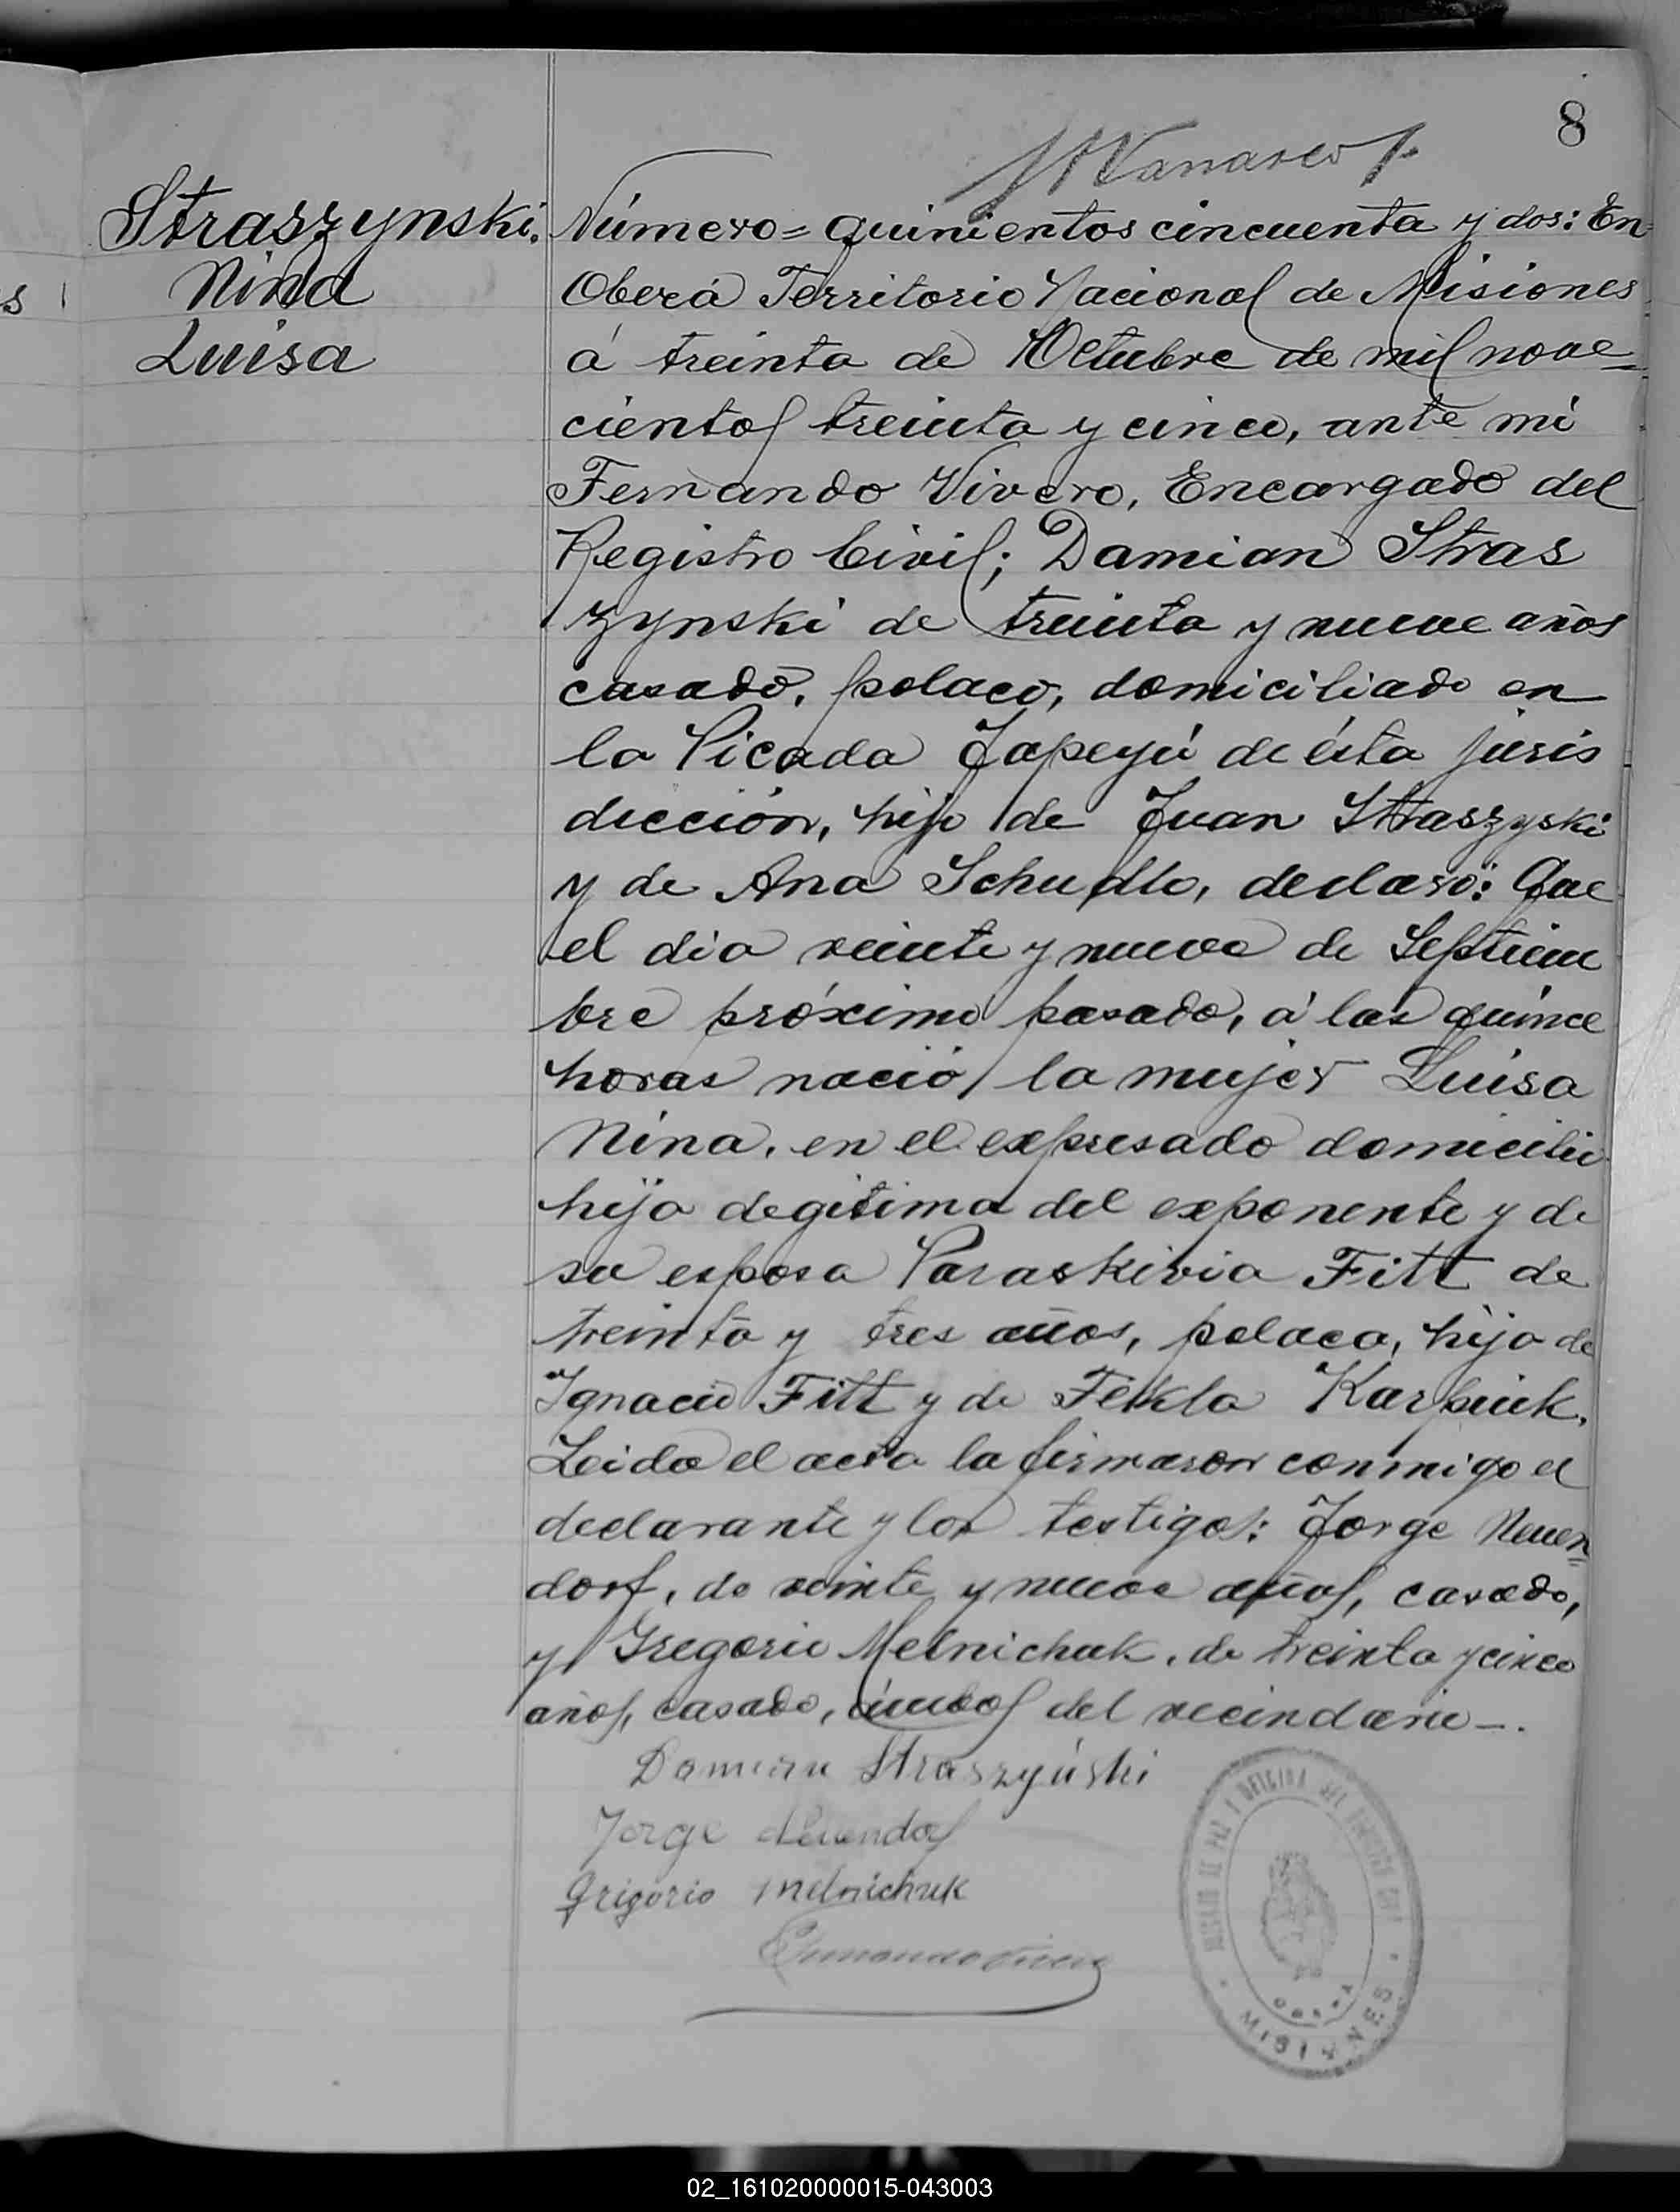 8
Straszynski.
Nina
Luisa
Número= quinientos cincuenta y dos: En
Oberá Territorio Nacional de Misiones
á treinta de Octubre de mil nove=
cientos treinta y cinco, ante mi
Fernando Vivero, Encargado del
Registro Civil; Damian Stras
zynski de treinta y nueve años
casado, polaco, domiciliado en
la Picada Yapeyú de ésta juris
dicción, hijo de Juan Straszyski
y de Ana Schudlo, declaró: Que
el dia veinte y nueve de Septiem
bre próximo pasado, á las quince
horas nació la mujer Luisa
Nina, en el expresado domicilio
hija legitima del exponente y de
su esposa Paraskivia Fitt de
treinta y tres años, polaca, hija de
Ignacio Fitt y de Tekla Karpiuk.
Leida el acta la firmaron conmigo el
declarante y los testigos: Jorge Neuen=
dorf, de veinte y nueve años, casado,
y Gregorio Melnichuk, de treinta y cinco
años, casado, ámbos del vecindario —.
Damian Straszyński
Jorge Neuendorf
Grigorio Melnichuk
JUZGADO DE PAZ Y OFICINA DEL REGISTRO CIVIL
OBERA
MISIONES
02_161020000015-043003